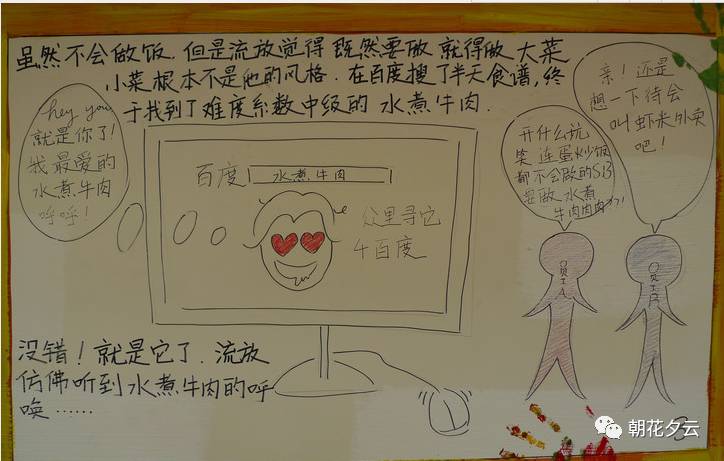 虽然不会做饭.但是流放觉得 既然要做 就得做 大菜
小菜根本不是他的风格.在百度搜了半天食谱,终
于找到了难度系数中级的 水煮牛肉.
hey you
就是你了!
我最爱的
水煮牛肉
呼呼!
百度 水煮牛肉
公里寻它
4百度
开什么玩
笑 连蛋炒饭
都不会做的SB
要做 水煮
牛肉肉肉??!
亲!还是
想一下待会
叫虾米外卖
吧!
员工A
员工B
没错!就是它了.流放
仿佛听到水煮牛肉的呼
唤……
5
朝花夕云